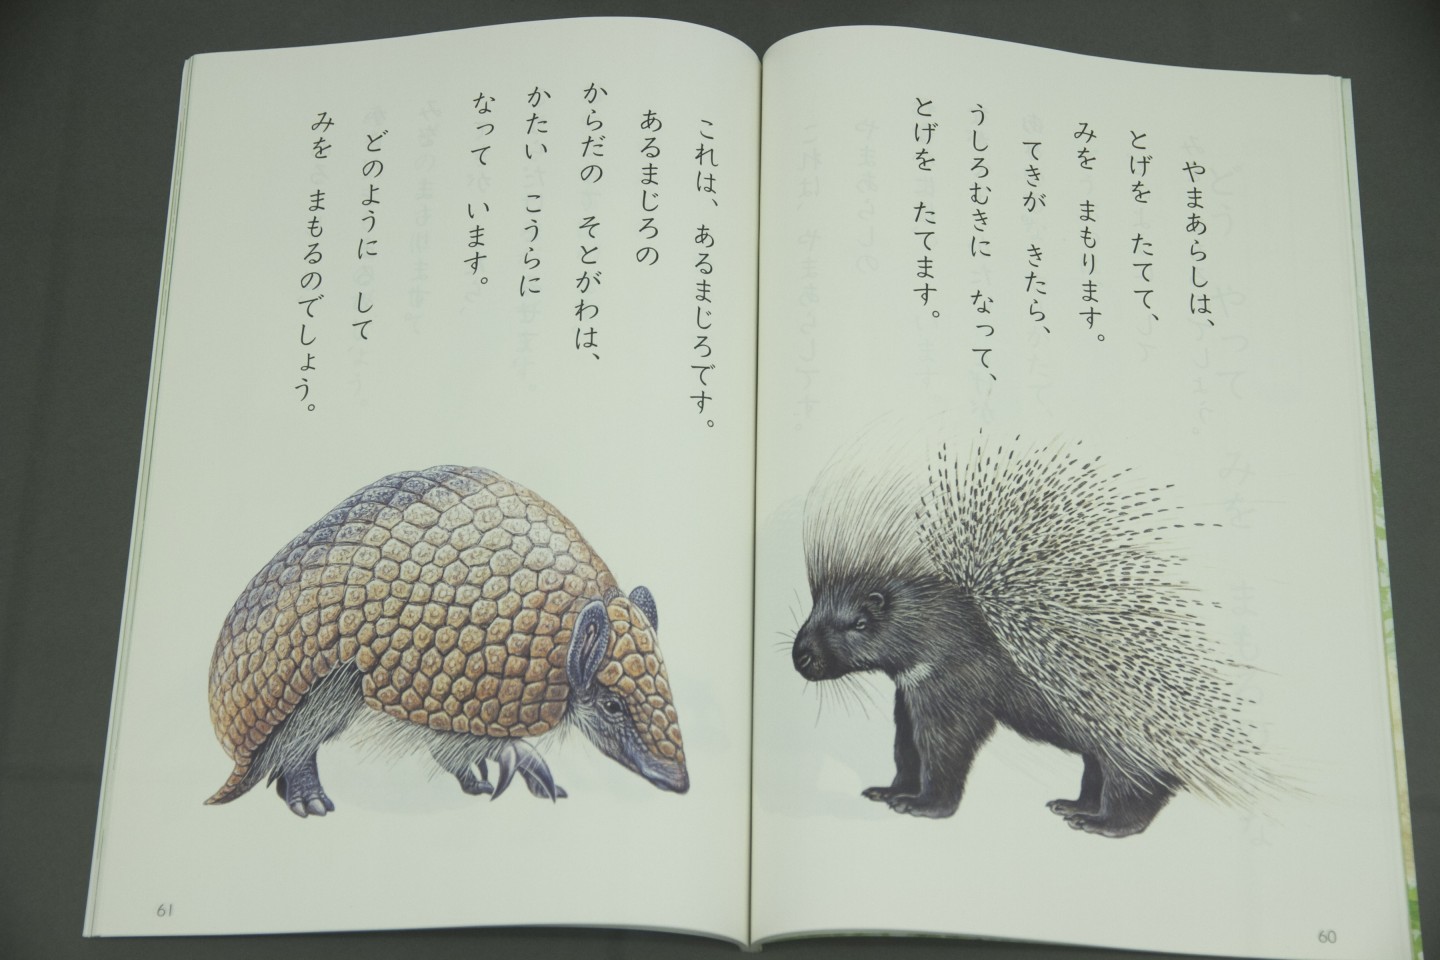 やまあらしは、
とげを たてて、
みを まもります。
てきが きたら、
うしろむきに なって、
とげを たてます。
60
これは、あるまじろです。
あるまじろの
からだの そとがわは、
かたい こうらに
なって います。
どのように して
みを まもるのでしょう。
61